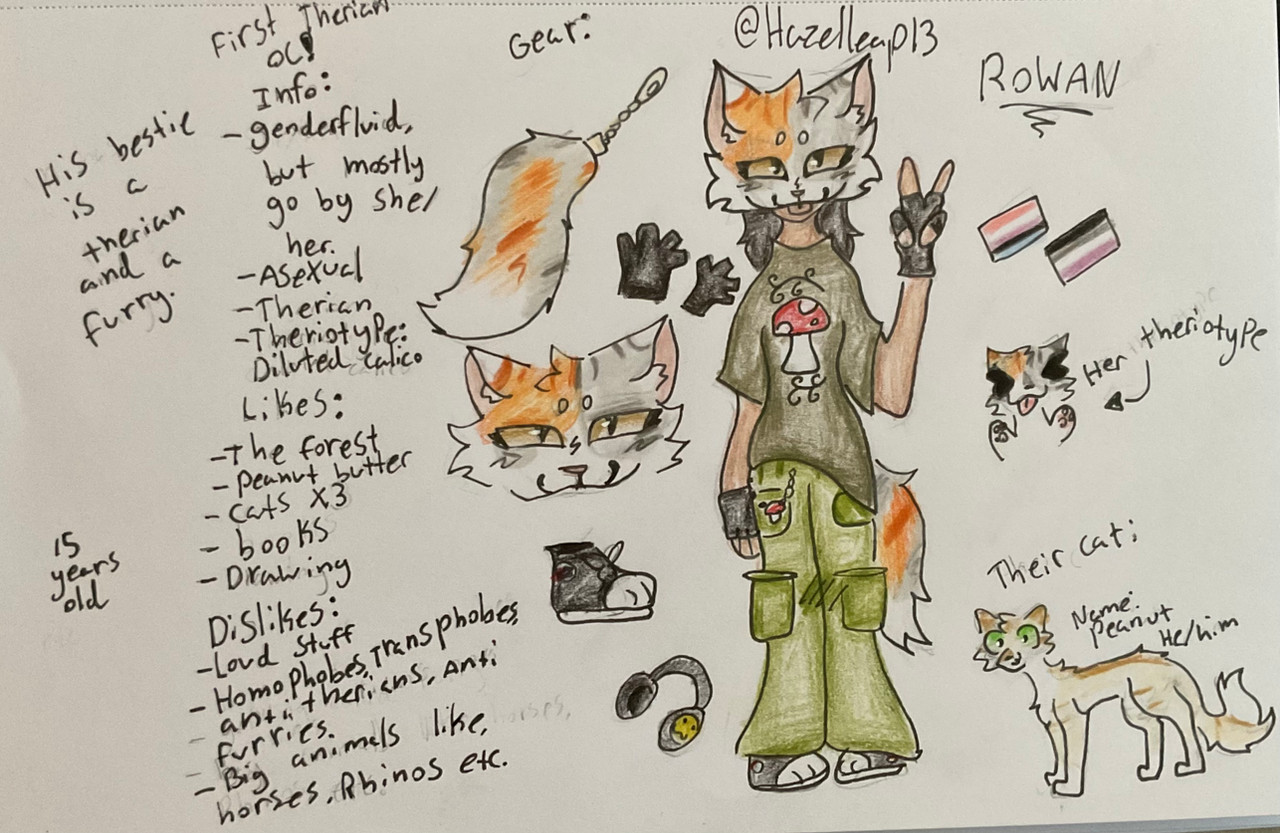 First Therian
OC!
Info:
- genderfluid,
but mostly
go by she/
her.
- Asexual
- Therian
- Theriotype:
Diluted calico
Likes:
- The forest
- Peanut butter
- Cats X3
- books
- Drawing
Dislikes:
- Loud stuff
- Homophobes, Transphobes,
- anti therians, Anti
- furries.
- Big animals like,
horses, Rhinos etc.
His bestie
is a
therian
and a
furry.
15
years
old
Gear:
@Hazelleap13
ROWAN
Her theriotype
Their cat;
Name:
Peanut
He/him